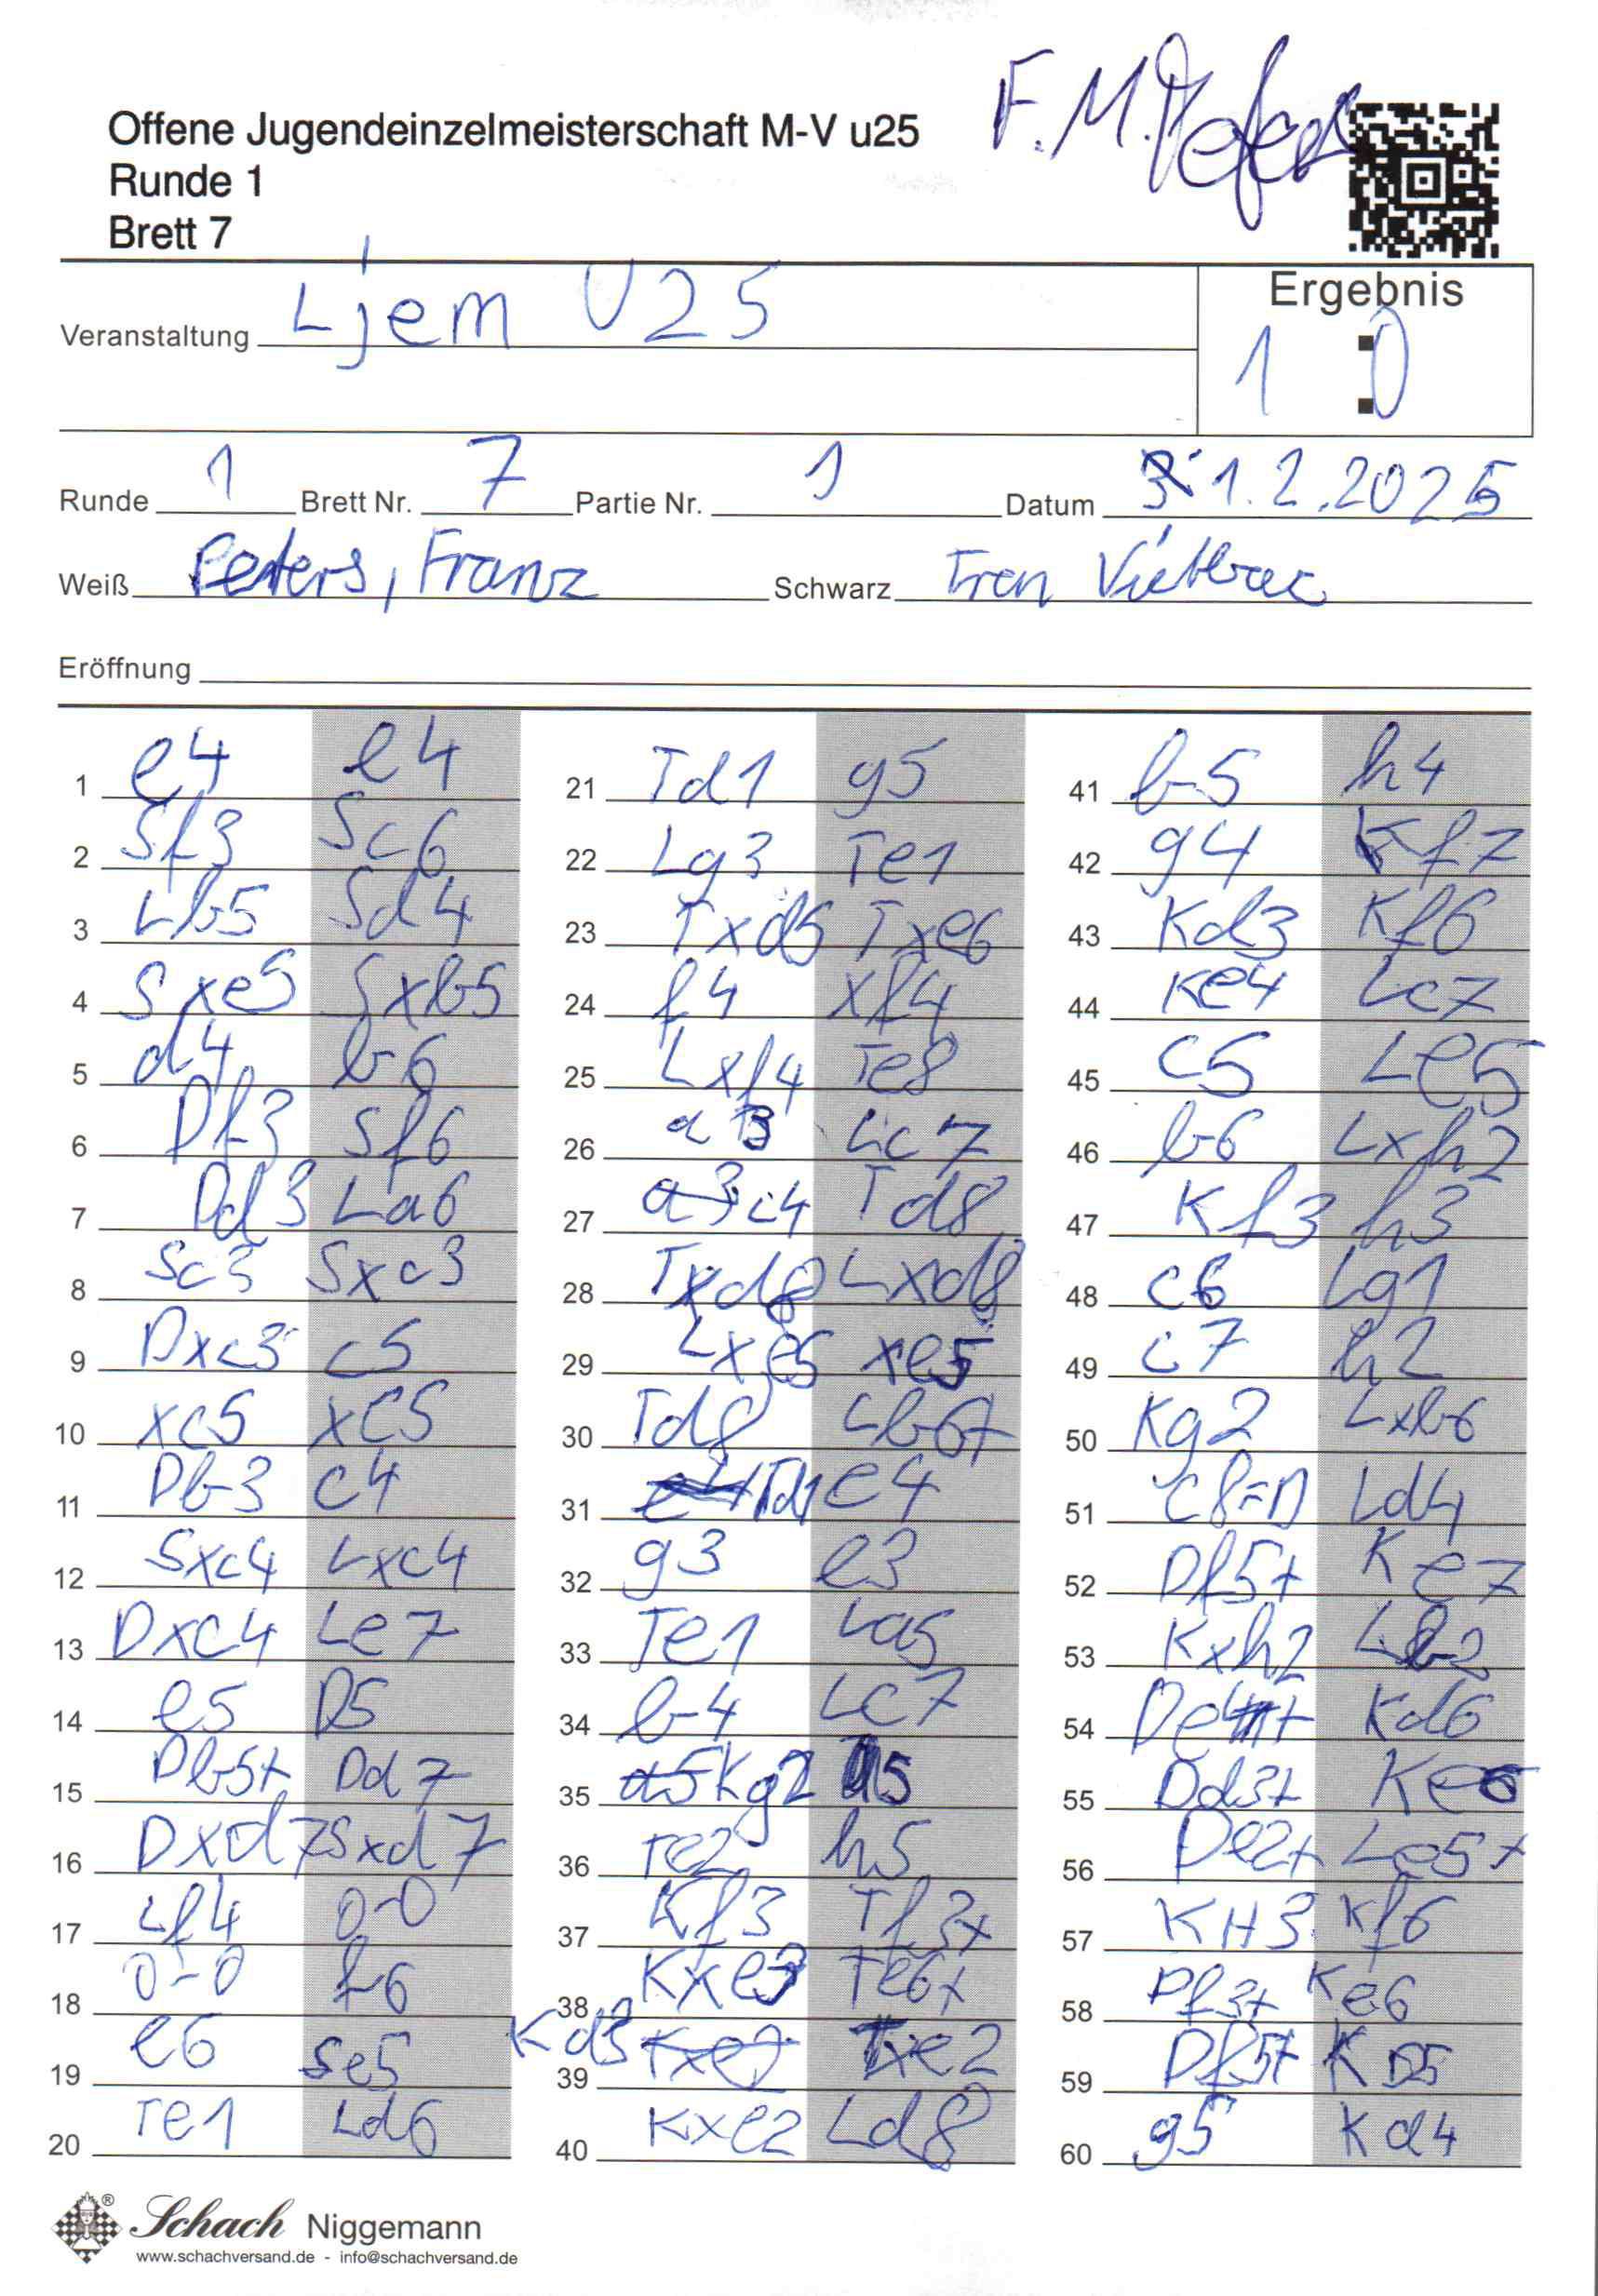 Offene Jugendeinzelmeisterschaft M-V u25
Runde 1
Brett 7
F. M.
Veranstaltung Ljem U25
Ergebnis
1 : 0
Runde 1 Brett Nr. 7 Partie Nr. 1 Datum 1.2.2025
Weiß Peters, Franz Schwarz Tran
Eröffnung
1 e4 e4 21 Td1 g5 41 b5 h4
2 Sf3 Sc6 22 Lg3 Te1 42 g4 Kf7
3 Lb5 Sd4 23 Txd5 Txe6 43 Kd3 Kf6
4 Sxe5 Sxb5 24 f4 xf4 44 Ke4 Lc7
5 d4 b6 25 Lxf4 Te8 45 c5 Le5
6 Df3 Sf6 26 a3 Lc7 46 b6 Lxh2
7 Dd3 La6 27 a3 c4 Td8 47 Kf3 h3
8 Sc3 Sxc3 28 Txd8 Lxd8 48 c6 Lg1
9 Dxc3 c5 29 Lxe5 xe5 49 c7 h2
10 xc5 xc5 30 Td8 Lb6+ 50 Kg2 Lxb6
11 Db3 c4 31 Td1 e4 51 c8=D Ld4
12 Sxc4 Lxc4 32 g3 e3 52 Df5+ Ke7
13 Dxc4 Le7 33 Te1 La5 53 Kxh2 Lb2
14 e5 D5 34 b4 Lc7 54 De4+ Kd6
15 Db5+ Dd7 35 a5 Kg2 a5 55 Dd3+ Ke6
16 Dxd7 Sxd7 36 Te2 h5 56 De2+ Le5+
17 Lf4 0-0 37 Kf3 Tf3+ 57 KH3 Kf6
18 0-0 f6 38 Kxe3 Te6+ 58 Df3+ Ke6
19 e6 Se5 39 Kd3 Txe2 59 Df5+ KD5
20 Te1 Ld6 40 Kxe2 Ld8 60 g5 Kd4
Schach Niggemann
www.schachversand.de - info@schachversand.de